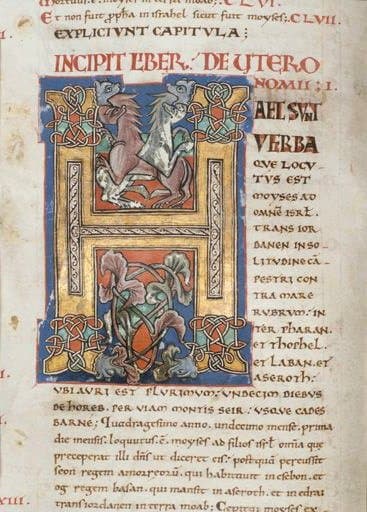 mortuus ẽ moyses in terra moab; CLVI.
Et non fuit ꝓpħa in israhel sicut fuit moyses; CLVII.
EXPLICIUNT CAPITULA;
INCIPIT LIBER: DEUTERO
NOMII; I.
HAEC SUNT
VERBA
QUE LOCU-
TUS EST
MOYSES AD
OMNẼ ISRL̃.
TRANS IOR
DANEN IN SO-
LITUDINE CÃ-
PESTRI CON
TRA MARE
RUBRUM. IN
TER PHARAN.
ET THOPHEL.
ET LABAN. ET
ASEROTH:
UBI AURI EST PLURIMUM: UNDECIM DIEBUS
DE HOREB. PER VIAM MONTIS SEIR: USQUE CADES
BARNE; Quadragesimo anno. undecimo mense. prima
die mensis. locutus. ẽ. moyses ad filios isrł omia que
preceperat illi dñs ut diceret eis: postquã percussit
seon regem amorreorũ. qui habitavit in esebon. et
og regem basan. qui mansit in aseroth. et in edrai
trans iordanen in terra moab; Cepitq; moyses ex
XIII.